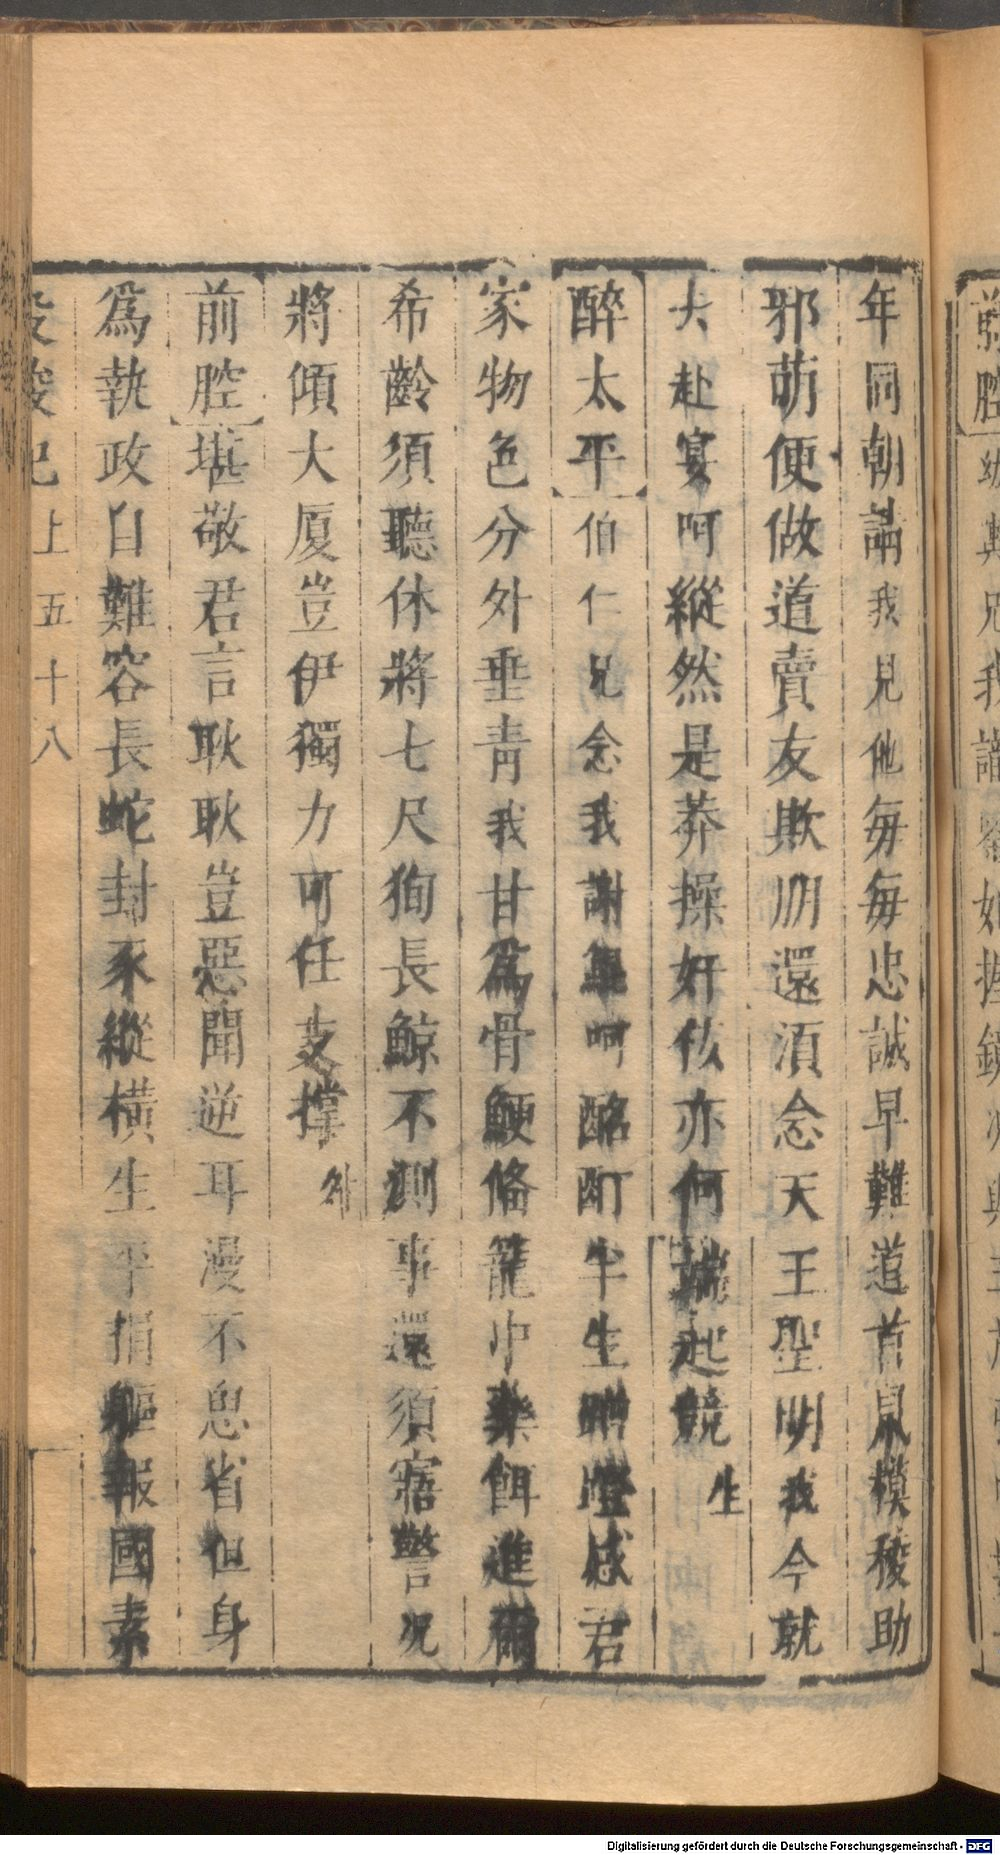 年同朝講我見他每每忠誠早難道首鼠模稜助
邪萌便做道賣友欺朋還須念天王聖明我今就
去赴宴呵縱然是莽操奸依亦何端起競生
醉太平伯仁兄念我謝鯤呵酩酊半生蹭蹬感君
家物色分外垂青我甘為骨鯁偹籠中藥餌進爾
希齡須聽休將七尺徇長鯨不測事還須寤警况
將傾大厦豈伊獨力可任支撐外
前腔堪敬君言耿耿豈惡聞逆耳漫不思省但身
為執政自難容長蛇封豕縱橫生平捐軀報國素
上五十八
Digitalisierung gefördert durch die Deutsche Forschungsgemeinschaft - DFG